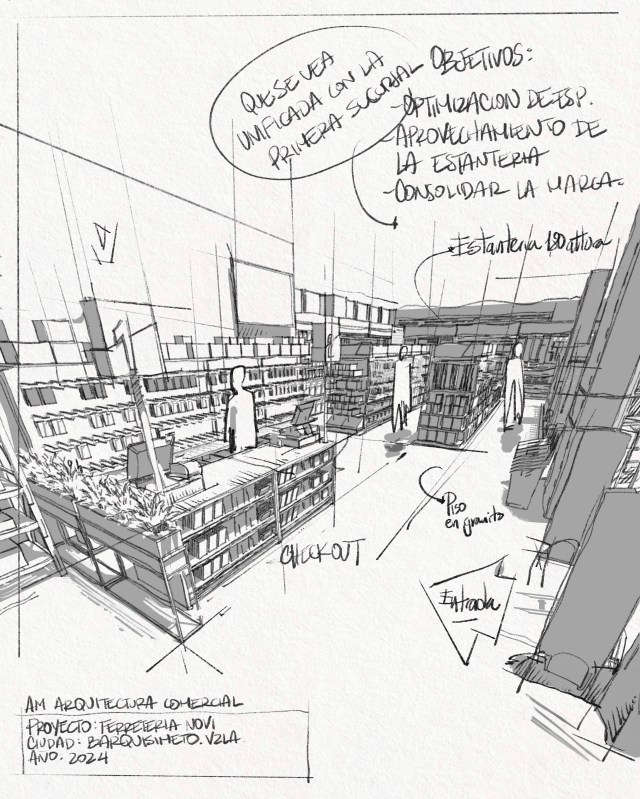 QUE SE VEA
UNIFICADA CON LA
PRIMERA SUCURSAL
OBJETIVOS:
-OPTIMIZACION DE ESP.
-APROVECHAMIENTO DE
LA ESTANTERIA
-CONSOLIDAR LA MARCA.
Estanteria 1.80 altura
Piso
en granito
CHECK OUT
Entrada
AM ARQUITECTURA COMERCIAL
PROYECTO: FERRETERIA NOVI
CIUDAD: BARQUISIMETO. VZLA.
AÑO. 2024